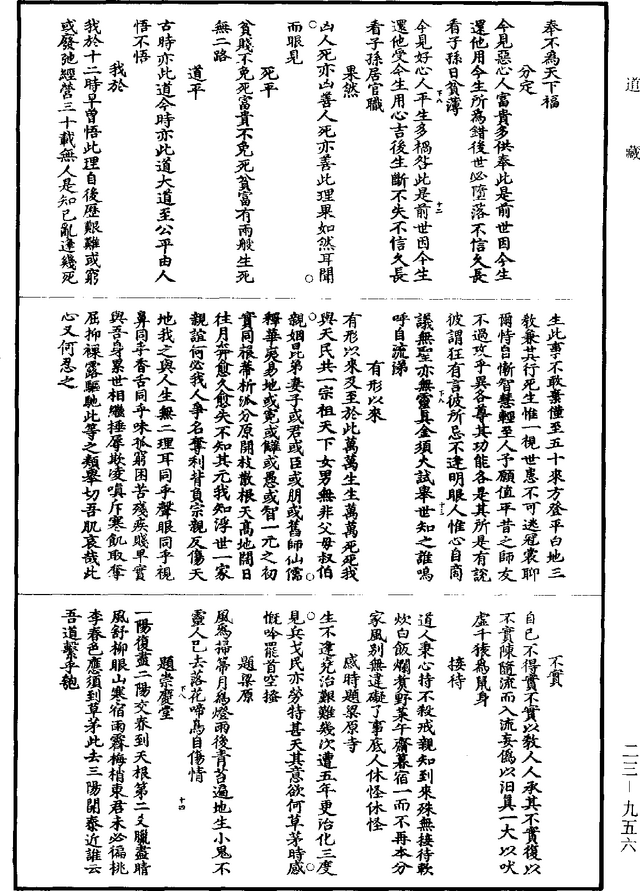 道藏
奉不為天下福
分定
今見惡人富貴多供奉此是前世因今生
還他用今生所為錯後世必墮落不信久長
看子孫日貧薄
今見好心人平生多禍咎此是前世因今生
還他受今生用心吉後生斷不失不信久長
看子孫居官職
果然
凶人死亦凶善人死亦善此理果如然耳聞
而眼見
死平
貧賤不免死富貴不免死貧富有兩般生死
無二路
道平
古時亦此道今時亦此道大道至公平由人
悟不悟
我於
我於十二時早曾悟此理自後歷艱難或窮
或發弛經營三十載無人是知已亂逢幾死
生此事不敢棄僅至五十來方登平白地三
教兼其行死生惟一視世患不可逃冠裳聊
爾恃昌慚智慧輕至人予願值平昔之師友
不過攻乎異各尊其功能各是其所是有說
彼謂狂有言彼所忌不逢明眼人惟心自商
議無聖亦無靈真金須大試舉世知之誰嗚
呼自流涕
有形以來
有形以來及至於此萬萬生生萬萬死死我
與天民共一宗祖天下女男無非父母叔伯
親姻昆弟妻子或君或臣或朋或舊師仙儒
釋華夷易地或寃或讎或愚或智一元之初
實同根蒂析派分原開枝散根天高地闊日
往月奔愈久愈失不知其元我知浮世一家
親誼何必我人爭名奪利背負宗親反傷天
地我之與人生無二理耳同乎聲眼同乎視
鼻同乎香舌同乎味孤窮困苦殘疾賤卑實
與吾身累世相繼捶辱欺凌嗔斥寒飢取奪
屈抑裸露驅馳此等之類舉切吾肌哀哉此
心又何忍之
不實
自已不得實不實以教人人承其不實復以
不實陳隨流而入流妄偽以汩真一犬以吠
虛千猿為鼠身
接待
道人秉心持不殺戒親知到來殊無接待軟
炊白飯爛煑野菜午齋暮宿一而不再本分
家風別無違礙了事底人休怪休怪
感時題梁原寺
生不逢堯治艱難幾次遭五年更治化三度
見兵戈民亦勞特甚天其意欲何草茅時感
慨吟罷首空搔
題梁原
風為掃箒月為燈雨後青苔遍地生小鬼不
靈人已去落花啼鳥自傷情
題崇慶堂
一陽復盡二陽交春到天根第二爻臘盡晴
風舒柳眼山寒宿雨霽梅梢東君未必偏桃
李春色應須到草茅此去三陽開泰近誰云
吾道繫乎匏
二三－九五六